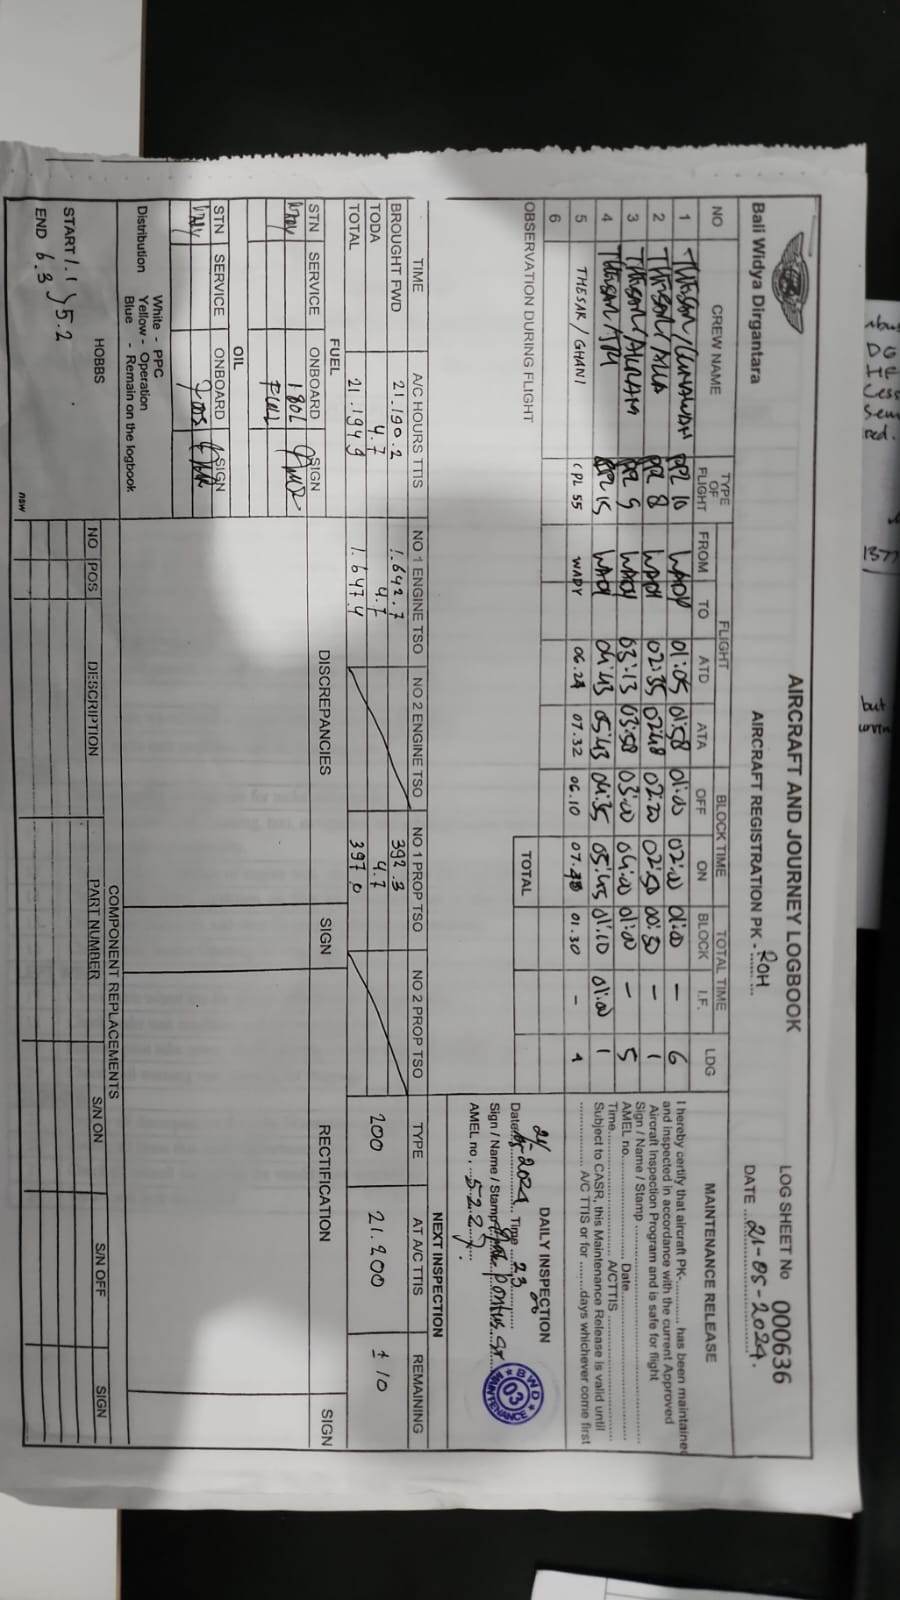 Bali Widya Dirgantara
AIRCRAFT AND JOURNEY LOGBOOK
AIRCRAFT REGISTRATION PK - ROH
LOG SHEET No 000636
DATE 21-05-2024.
NO CREW NAME TYPE OF FLIGHT FLIGHT FROM TO ATD ATA BLOCK TIME OFF ON TOTAL TIME BLOCK I.F. LDG
1 PPL 10 01:05 01:58 01:00 02:00 01:00 - 6
2 PPL 8 02:35 02:48 02:20 02:50 00:50 - 1
3 PPL 9 03:13 03:58 03:00 04:00 01:00 - 5
4 15 04:43 05:43 04:35 05:45 01:10 01:00 1
5 THESAR / GHANI CPL 55 WADY 06.24 07.32 06.10 01.30 - 1
6
OBSERVATION DURING FLIGHT
TOTAL
MAINTENANCE RELEASE
I hereby certify that aircraft PK-........... has been maintained
and inspected in accordance with the current Approved
Aircraft Inspection Program and is safe for flight
Sign / Name / Stamp
AMEL no. Date
Time A/CTTIS
Subject to CASR, this Maintenance Release is valid until
A/C TTIS or for days whichever come first
DAILY INSPECTION
Date 2024 Time 23
Sign / Name / Stamp
AMEL no. 5227.
BWD 03 MAINTENANCE
TIME A/C HOURS TTIS NO 1 ENGINE TSO NO 2 ENGINE TSO NO 1 PROP TSO NO 2 PROP TSO
BROUGHT FWD 21.190.2 1.642.7 392.3
TODA 4.7 4.7 4.7
TOTAL 21.194.9 1.647.4 397.0
NEXT INSPECTION
TYPE AT A/C TTIS REMAINING
200 21.200 ± 10
FUEL
STN SERVICE ONBOARD SIGN
180L
FULL
OIL
STN SERVICE ONBOARD SIGN
7 QTS
DISCREPANCIES SIGN RECTIFICATION SIGN
Distribution White - PPC
Yellow - Operation
Blue - Remain on the logbook
HOBBS
START 1.1
END 6.3
5.2
COMPONENT REPLACEMENTS
NO POS DESCRIPTION PART NUMBER S/N ON S/N OFF SIGN
new
but